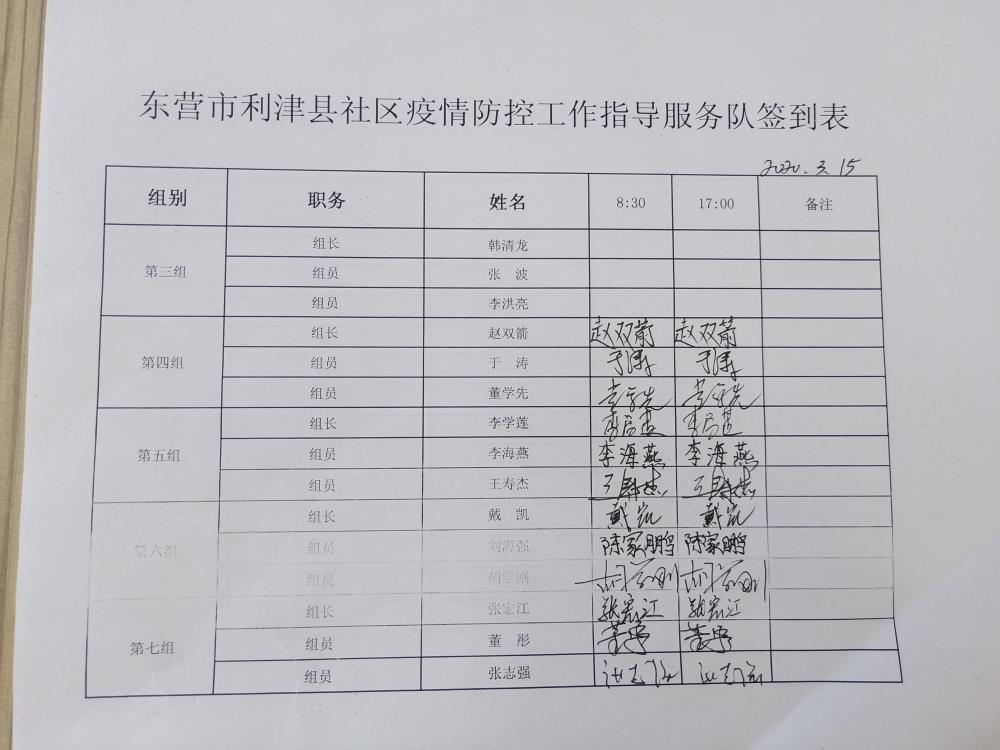 东营市利津县社区疫情防控工作指导服务队签到表
2020.3.15
组别 职务 姓名 8:30 17:00 备注
第三组 组长 韩清龙
组员 张 波
组员 李洪亮
第四组 组长 赵双箭 赵双箭 赵双箭
组员 于 涛 于涛 于涛
组员 董学先 董学先 董学先
第五组 组长 李学莲
组员 李海燕 李海燕 李海燕
组员 王寿杰 王寿杰 王寿杰
第六组 组长 戴 凯 戴凯 戴凯
组员 刘海强 陈家鹏 陈家鹏
组员 胡学刚 胡学刚 胡学刚
第七组 组长 张宏江 张宏江 张宏江
组员 董 彤
组员 张志强